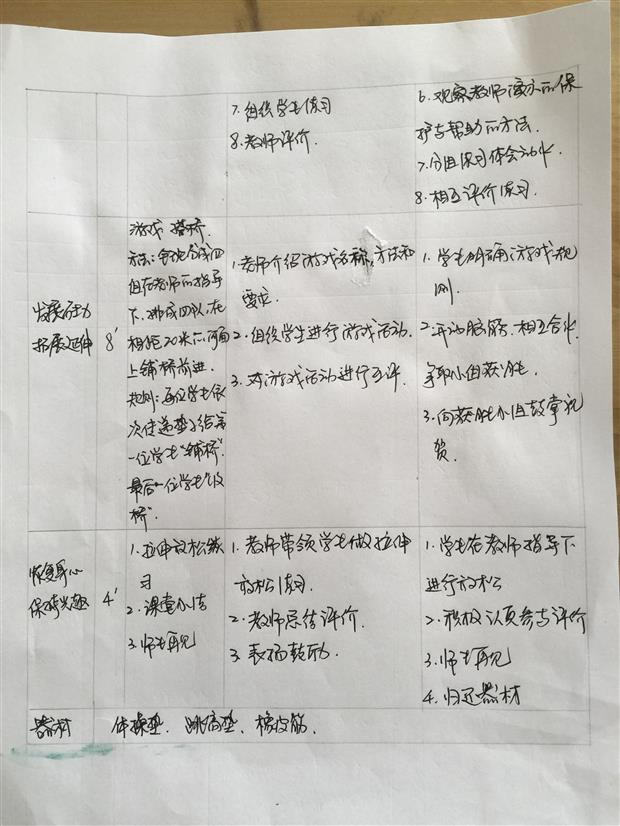 7.组织学生练习
8.教师评价.
6.观察教师演示的保
护与帮助的方法.
7.分组练习体会动作
8.相互评价练习.
发展活力
拓展延伸
8′
游戏 搭桥.
方法:全班分成四
组在老师的指导
下,排成四队,在
相距20米的两面
上铺桥前进.
规则:每位学生依
次传递垫子给第
一位学生"铺桥".
最后一位学生"收
桥".
1.老师介绍游戏名称,方法和
要求.
2.组织学生进行游戏活动.
3.对游戏活动进行互评.
1.学生明确游戏规
则.
2.开动脑筋.相互合作
争取小组获胜.
3.向获胜小组鼓掌祝
贺.
恢复身心
保持兴趣
4′
1.拉伸放松练
习
2.课堂小结
3.师生再见
1.老师带领学生做拉伸
放松练习.
2.老师总结评价.
3.表扬鼓励.
1.学生在老师指导下
进行放松
2.积极认真参与评价
3.师生再见
4.归还器材
器材
体操垫.跳高垫.橡皮筋.